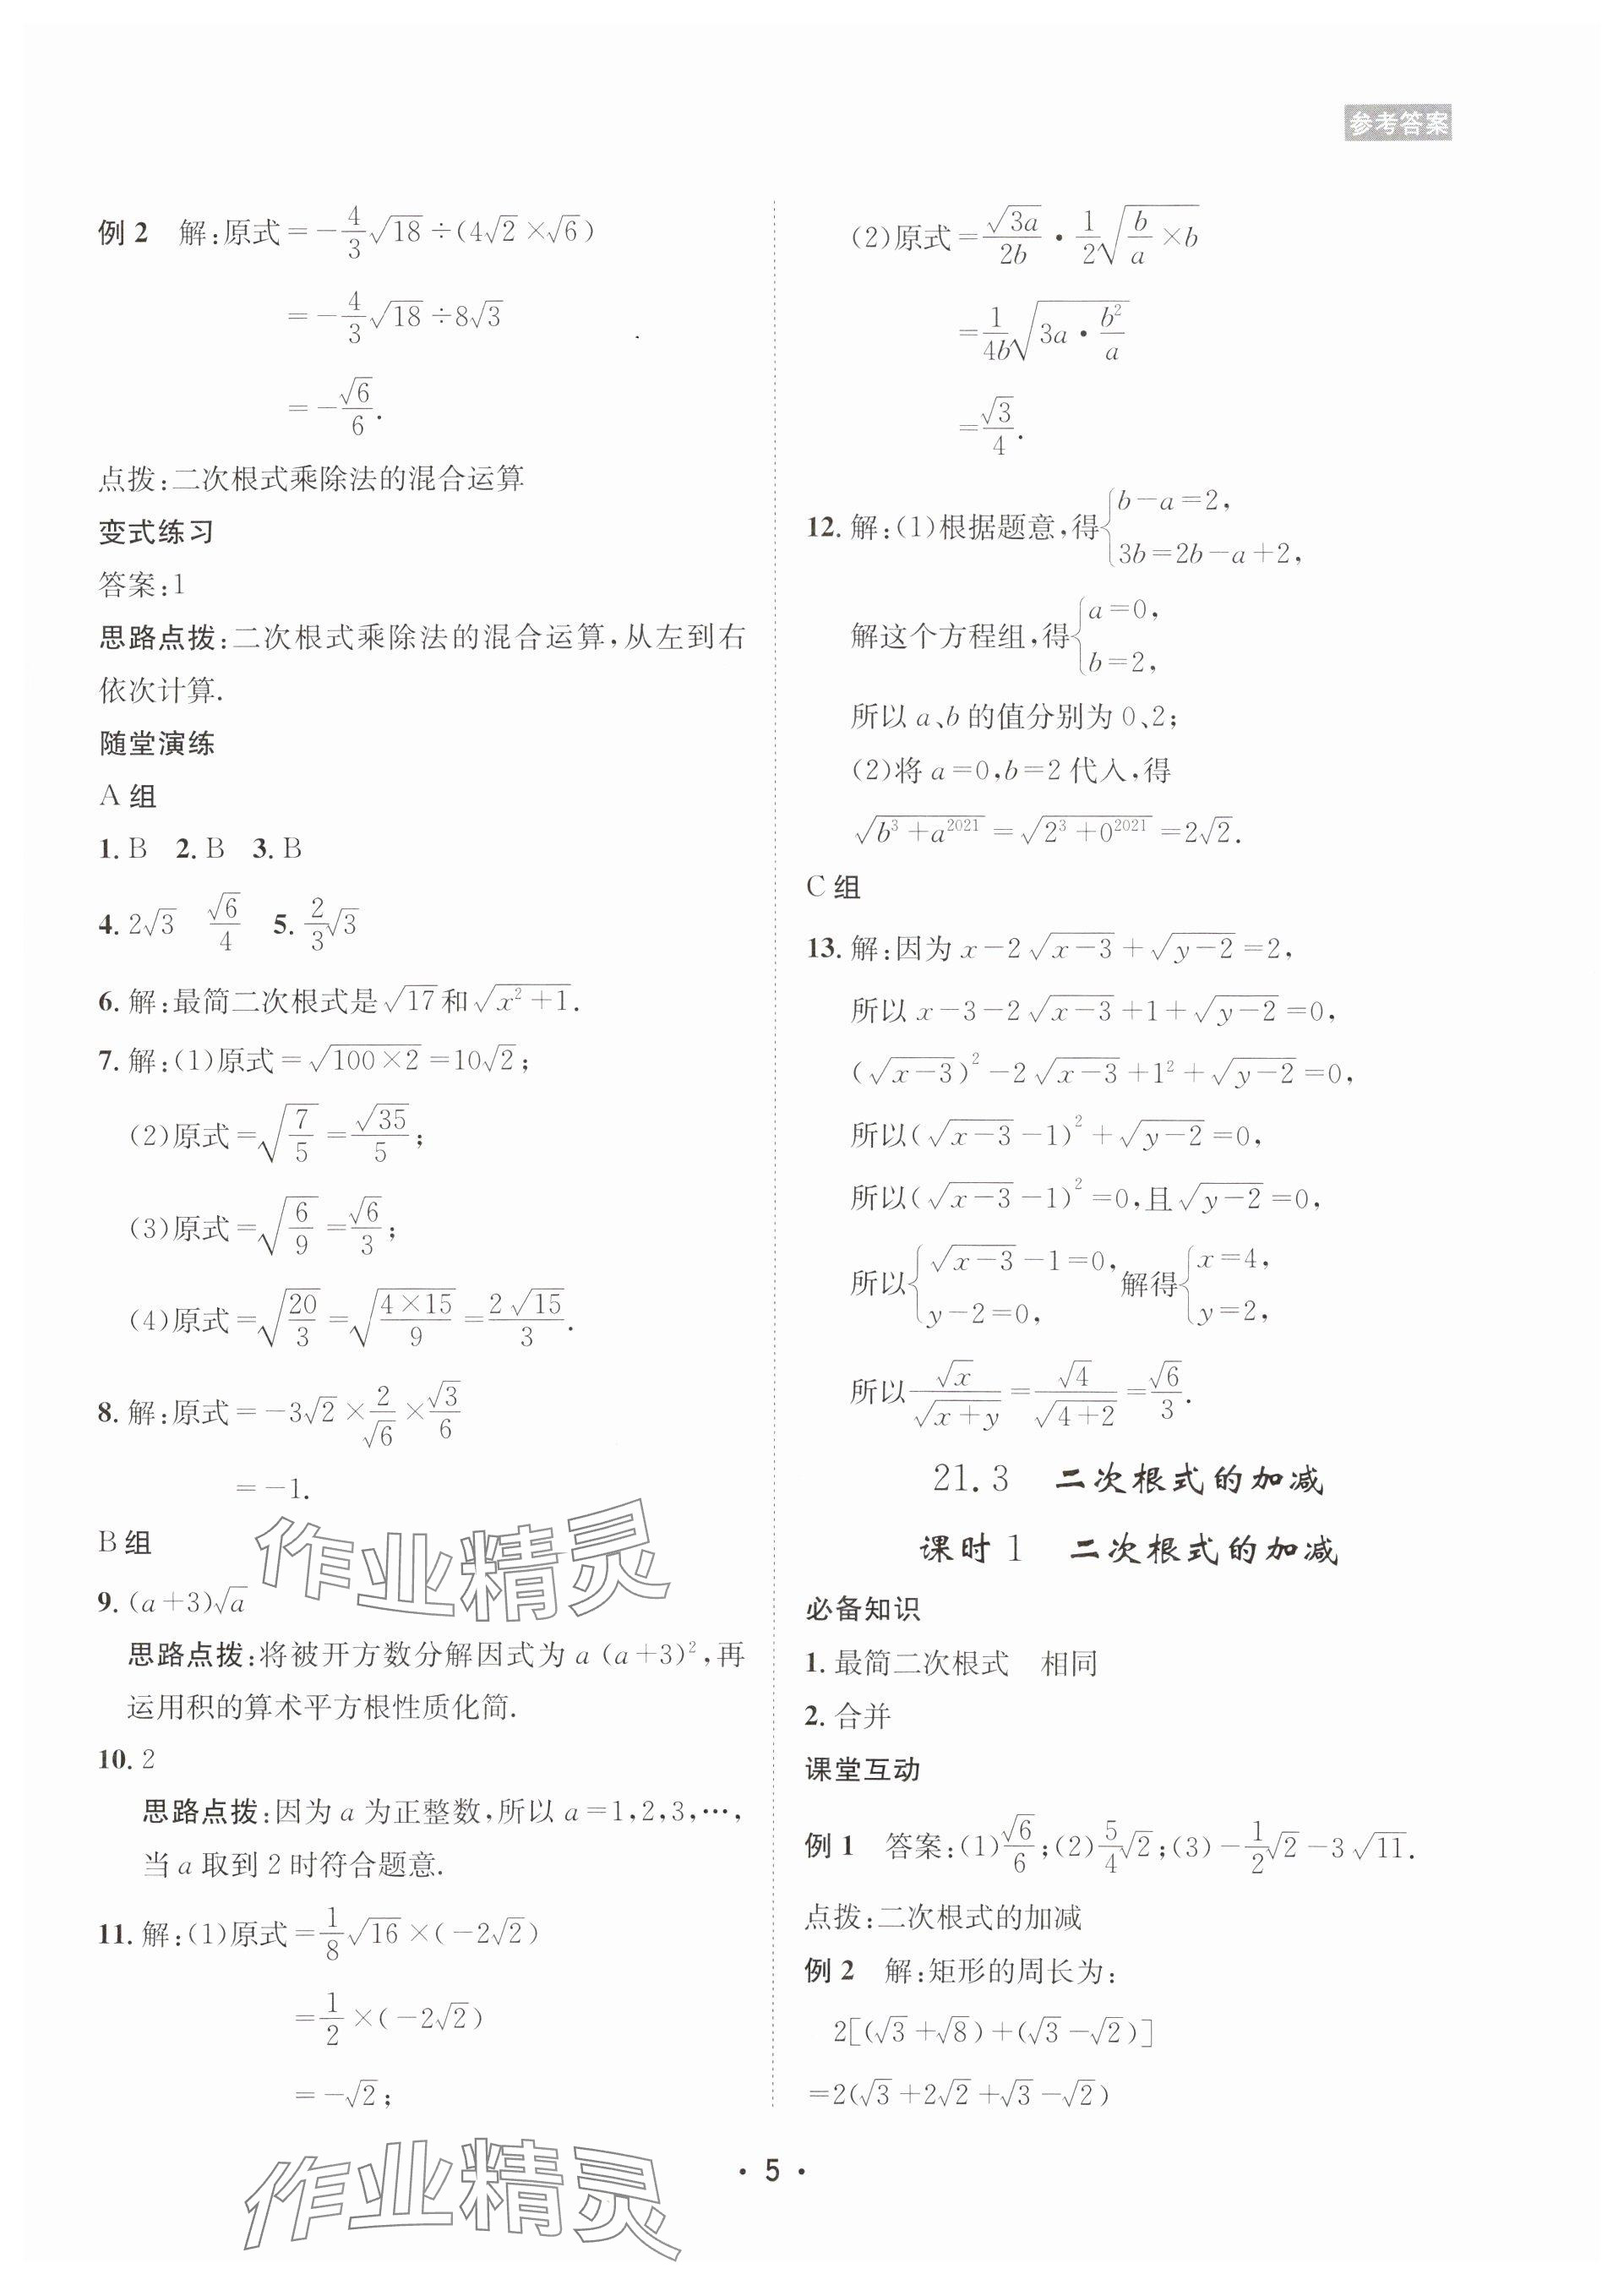 参考答案
例2 解:原式=-4/3√18÷(4√2×√6)
=-4/3√18÷8√3
=-√6/6.
点拨:二次根式乘除法的混合运算
变式练习
答案:1
思路点拨:二次根式乘除法的混合运算,从左到右
依次计算.
随堂演练
A组
1. B 2. B 3. B
4. 2√3 √6/4 5. 2/3√3
6. 解:最简二次根式是√17和√(x²+1).
7. 解:(1)原式=√(100×2)=10√2;
(2)原式=√(7/5)=√35/5;
(3)原式=√(6/9)=√6/3;
(4)原式=√(20/3)=√(4×15/9)=2√15/3.
8. 解:原式=-3√2×2/√6×√3/6
=-1.
B组
9. (a+3)√a
思路点拨:将被开方数分解因式为a(a+3)²,再
运用积的算术平方根性质化简.
10. 2
思路点拨:因为a为正整数,所以a=1,2,3,…,
当a取到2时符合题意.
11. 解:(1)原式=1/8√16×(-2√2)
=1/2×(-2√2)
=-√2;
(2)原式=√3a/2b·1/2√(b/a×b)
=1/4b√(3a·b²/a)
=√3/4.
12. 解:(1)根据题意,得{b-a=2, 3b=2b-a+2,
解这个方程组,得{a=0, b=2,
所以a、b的值分别为0、2;
(2)将a=0,b=2代入,得
√(b³+a²⁰²¹)=√(2³+0²⁰²¹)=2√2.
C组
13. 解:因为x-2√(x-3)+√(y-2)=2,
所以x-3-2√(x-3)+1+√(y-2)=0,
(√(x-3))²-2√(x-3)+1²+√(y-2)=0,
所以(√(x-3)-1)²+√(y-2)=0,
所以(√(x-3)-1)²=0,且√(y-2)=0,
所以{√(x-3)-1=0, y-2=0, 解得{x=4, y=2,
所以√x/√(x+y)=√4/√(4+2)=√6/3.
21.3 二次根式的加减
课时1 二次根式的加减
必备知识
1. 最简二次根式 相同
2. 合并
课堂互动
例1 答案:(1)√6/6;(2)5/4√2;(3)-1/2√2-3√11.
点拨:二次根式的加减
例2 解:矩形的周长为:
2[(√3+√8)+(√3-√2)]
=2(√3+2√2+√3-√2)
· 5 ·
作业精灵
作业精灵